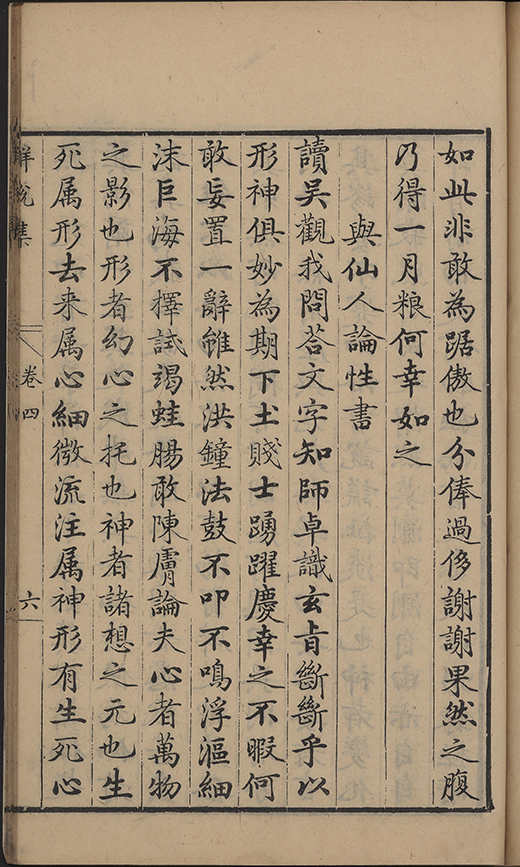 如此非敢為踞傲也分俸過侈謝謝果然之腹
乃得一月粮何幸如之
與仙人論性書
讀吳觀我問荅文字知師卓識玄旨斷斷乎以
形神俱妙為期下土賤士踴躍慶幸之不暇何
敢妄置一辭雖然洪鐘法鼓不叩不鳴浮漚細
沫巨海不擇試竭蛙腸敢陳膚論夫心者萬物
之影也形者幻心之托也神者諸想之元也生
死属形去来属心細微流注属神形有生死心
卷四
六